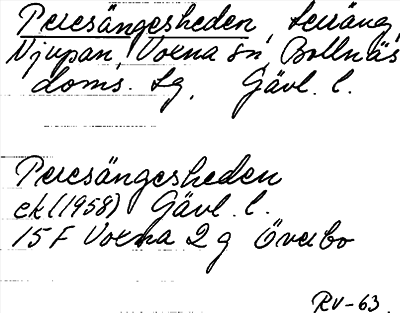 Persängesheden, Leräng,
Njupan, Voxna sn, Bollnäs
doms. sg, Gävl. l.
Persängesheden
ek (1958) Gävl. l.
15 F Voxna 2 g Överbo
RV-63.